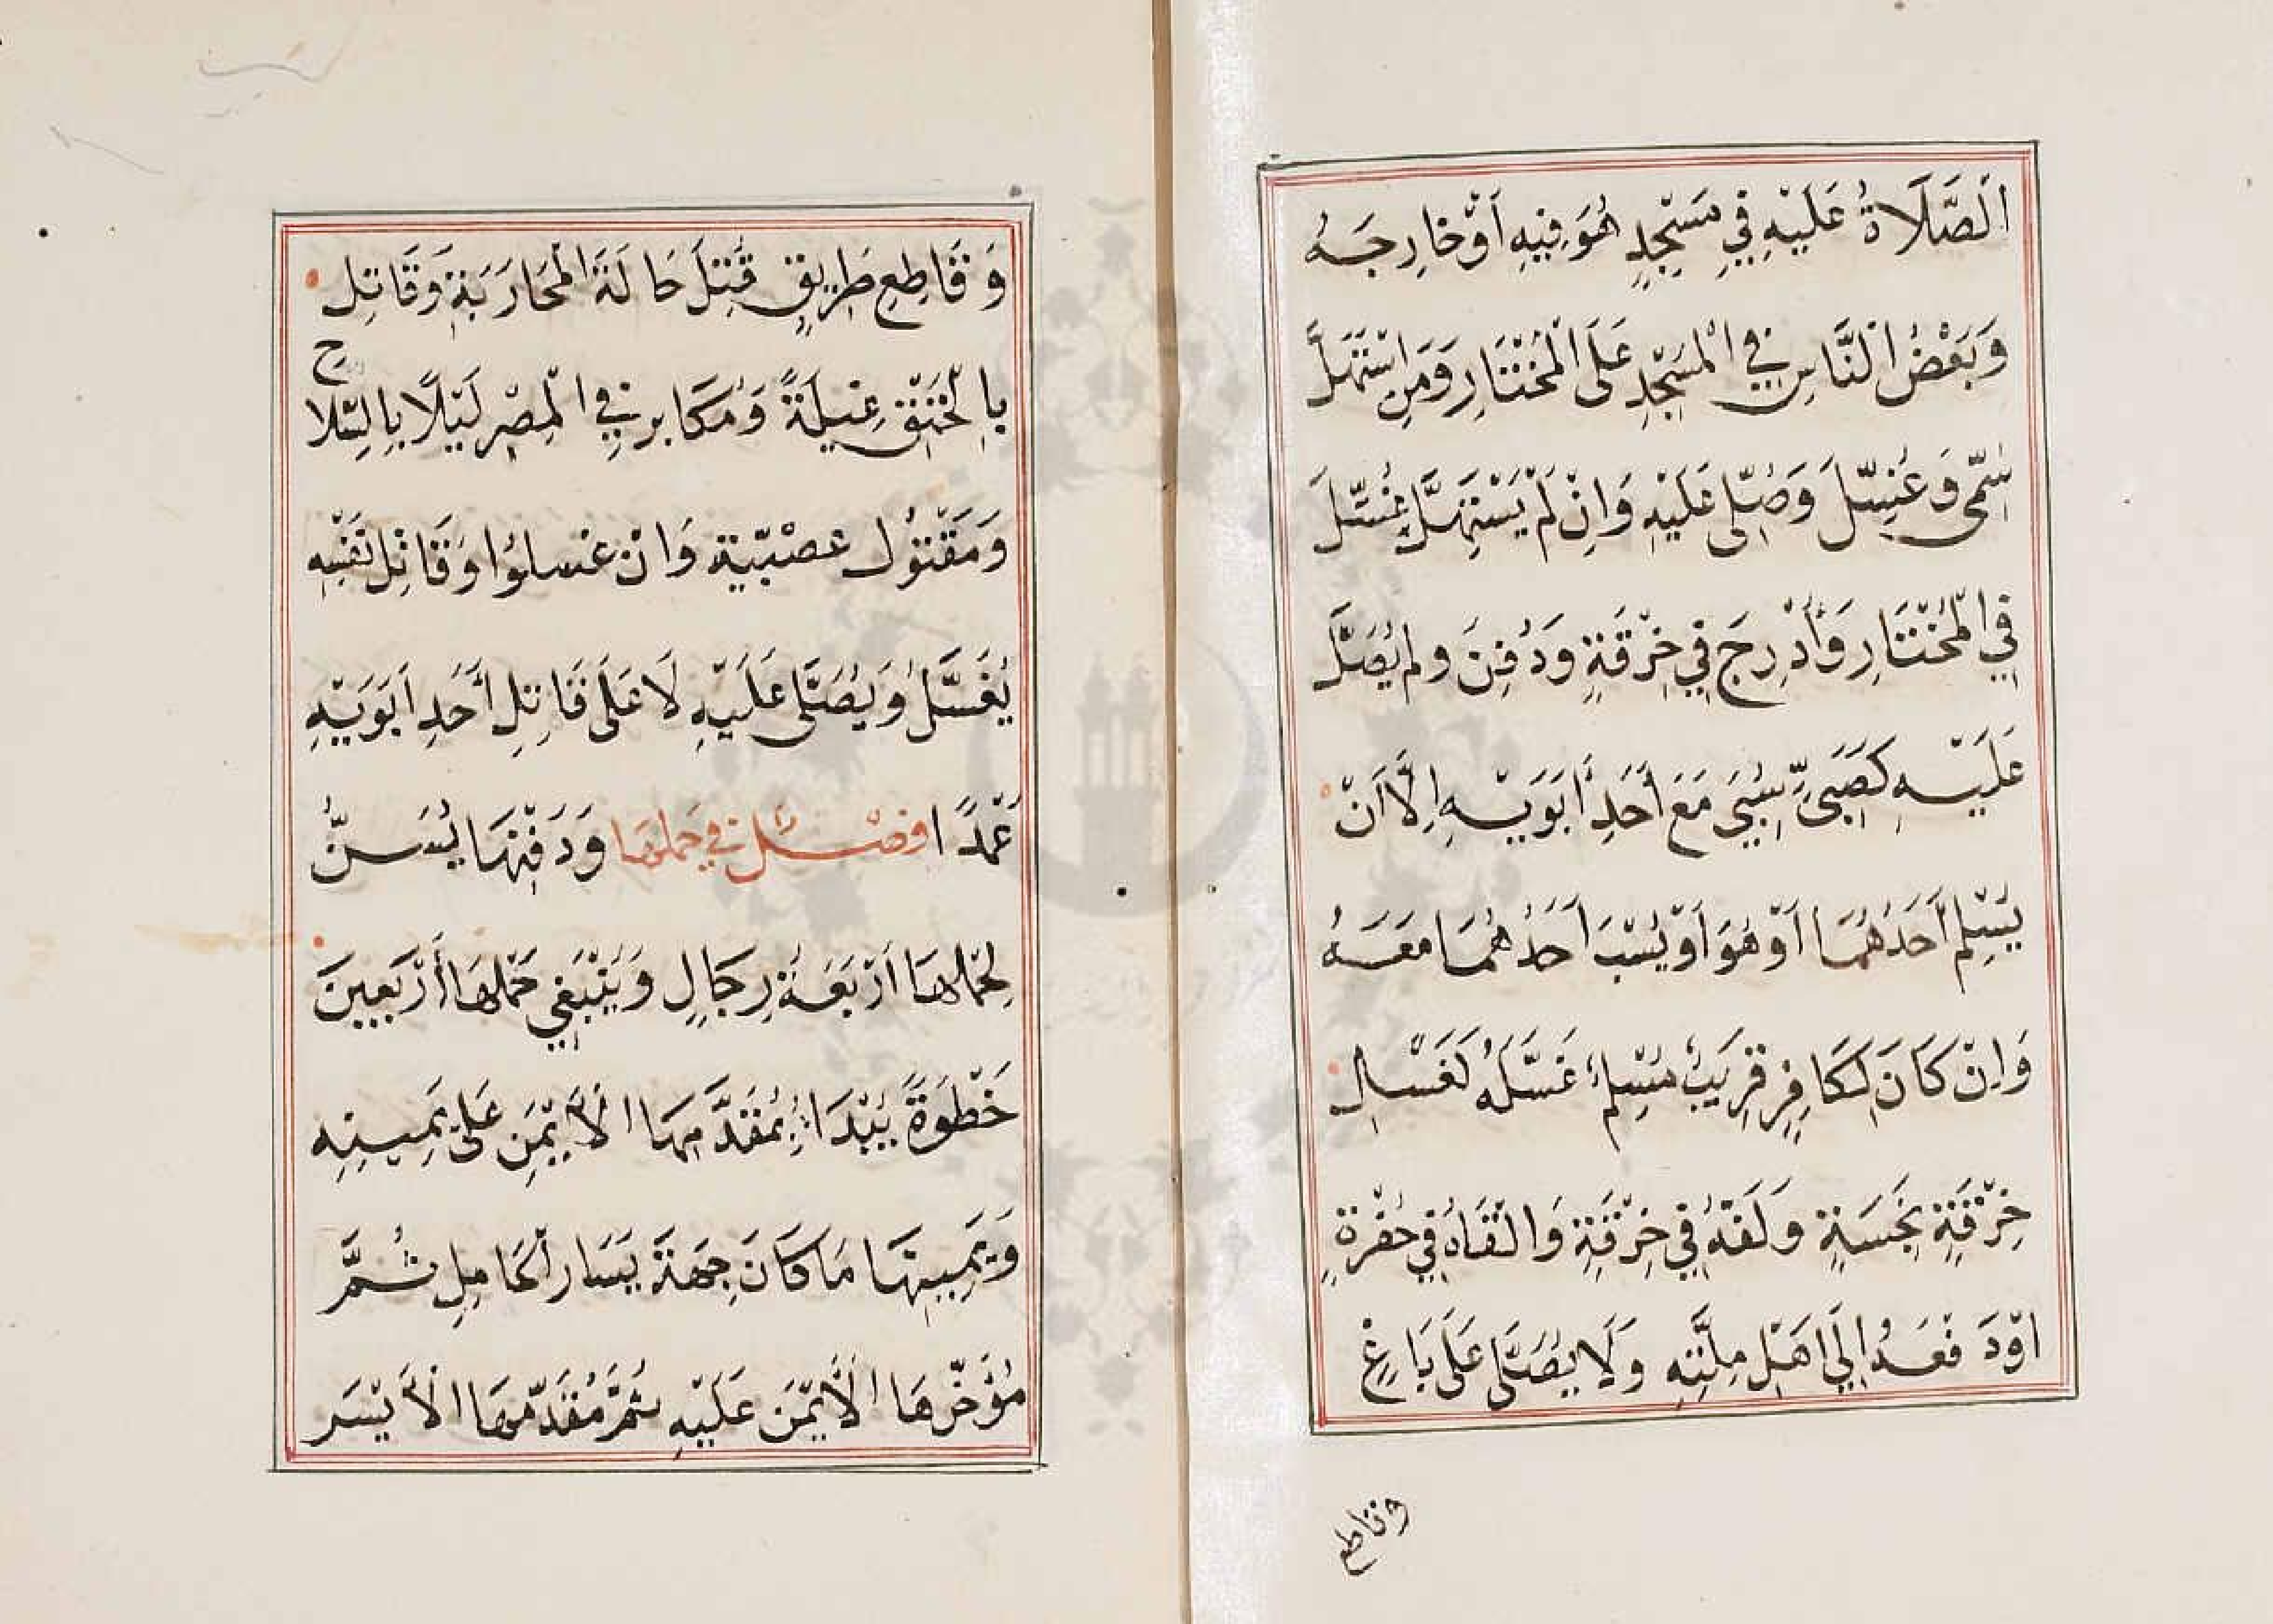 اَلصَّلَاةُ عَلَيْهِ فِي مَسْجِدٍ هُوَ فِيهِ اَوْ خَارِجَهُ
وَبَعْضُ النَّاسِ فِي الْمَسْجِدِ عَلَى الْمُخْتَارِ وَمَنِ اسْتَهَلَّ
سُمِّىَ وَغُسِّلَ وَصُلِّىَ عَلَيْهِ وَاِنْ لَمْ يَسْتَهِلَّ غُسِّلَ
فِي الْمُخْتَارِ وَأُدْرِجَ فِي خِرْقَةٍ وَدُفِنَ ولم يُصَلَّ
عَلَيْهِ كَصَبِىٍّ سُبِىَ مَعَ أَحَدِ أَبَوَيْهِ اِلَّا اَنْ
يُسْلِمَ أَحَدُهُمَا اَوْ هُوَ اَوْ يُسْبَ اَحَدُهُمَا مَعَهُ
وَاِنْ كَانَ لِكَافِرٍ قَرِيبٌ مُسْلِمٌ غَسَّلَهُ كَغَسْلِ
خِرْقَةٍ نَجِسَةٍ وَلَفَّهُ فِي خِرْقَةٍ وَالْقَاهُ فِي حُفْرَةٍ
اوْ دَفَعَهُ اِلَى اَهْلِ مِلَّتِهِ وَلَا يُصَلَّى عَلَى بَاغٍ
وقاطع
وَقَاطِعِ طَرِيقٍ قُتِلَ حَالَةَ الْمُحَارَبَةِ وَقَاتِلٍ
بِالْخَنْقِ غِيلَةً وَمُكَابِرٍ فِي الْمِصْرِ لَيْلًا بِالسِّلاح
وَمَقْتُولِ عَصَبِيَّةٍ وَاِنْ غسلوا وَقَاتِلُ نَفْسِهِ
يُغَسَّلُ وَيُصَلَّى عَلَيْهِ لَا عَلَى قَاتِلِ أَحَدِ اَبَوَيْهِ
عَمْدًا فصْلٌ فِي حَمْلِهَا وَدَفْنِهَا يُسَنُّ
لِحَمْلِهَا اَرْبَعَةُ رِجَالٍ وَيَنْبَغِي حَمْلُهَا أَرْبَعِينَ
خَطْوَةً يُبْدَاُ بِمُقَدَّمِهَا الْأَيْمَنِ عَلَى يَمِينِهِ
وَيَمِينُهَا مَا كَانَ جِهَةَ يَسَارِ الْحَامِلِ ثُمَّ
مُؤَخَّرِهَا الْأَيْمَنِ عَلَيْهِ ثُمَّ مُقَدَّمِهَا الْأَيْسَرِ